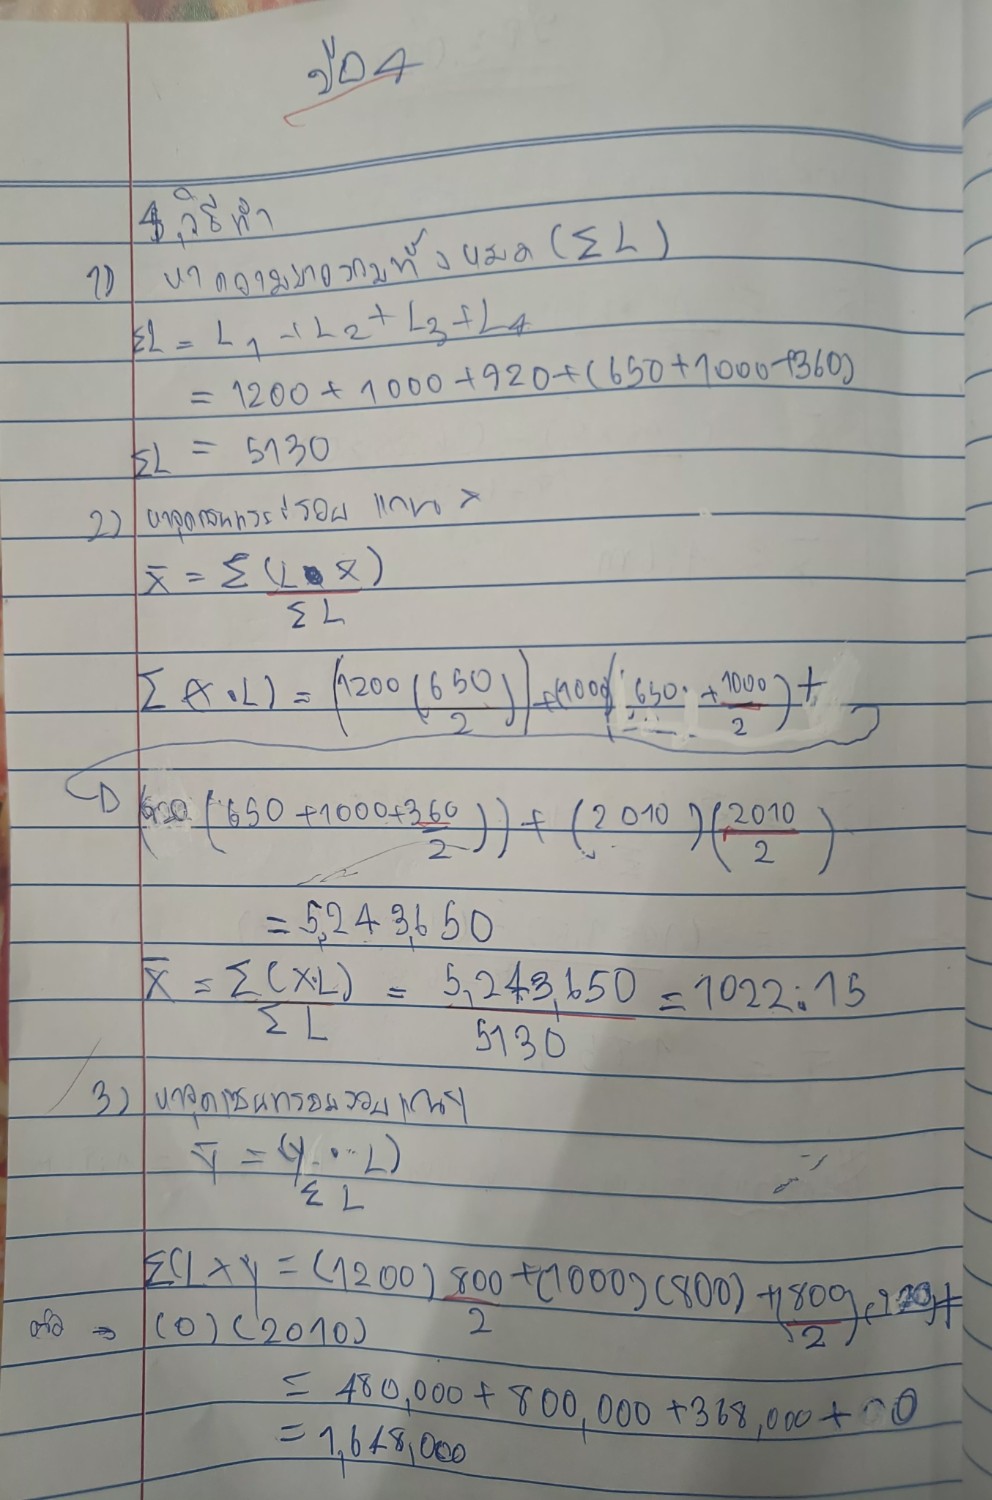 ข้อ 4
4. วิธีทำ
1) หาความยาวรวมทั้งหมด (ΣL)
ΣL = L1 + L2 + L3 + L4
= 1200 + 1000 + 920 + (650 + 1000 + 360)
ΣL = 5130
2) รอบ แกน x
x̄ = Σ(L • x̄) / ΣL
Σ(x · L) = (1200 (650/2)) + (1000 (650 + 1000/2) +
(920 (650 + 1000 + 360/2)) + (2010)(2010/2)
= 5,243,650
x̄ = Σ(x·L) / ΣL = 5,243,650 / 5130 = 1022.15
3) รอบแกน y
ȳ = (y · L) / ΣL
Σ(L × y = (1200) 800/2 + (1000)(800) + (800/2)(920) +
ต่อ → (0)(2010)
= 480,000 + 800,000 + 368,000 + 0
= 1,648,000